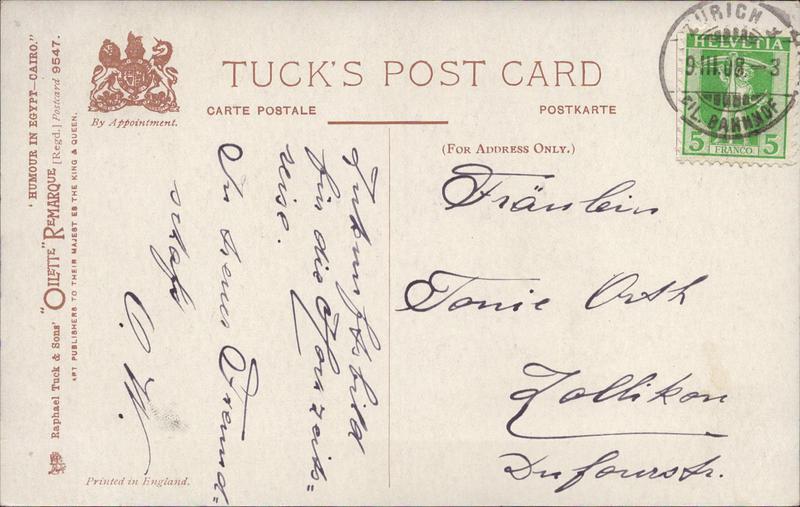 TUCK'S POST CARD
CARTE POSTALE
POSTKARTE
By Appointment.
(FOR ADDRESS ONLY.)
ZÜRICH
9.III.08 — 3
FIL. BAHNHOF
HELVETIA
5 FRANCO 5
Zukunftsbild
für die Hochzeits=
reise.
In treuer Freund=
schaft
O. W.
Fräulein
Tonie Orth
Zollikon
Dufourstr.
"HUMOUR IN EGYPT—CAIRO."
Raphael Tuck & Sons' "OILETTE" REMARQUE [Regd.] Postcard 9547.
ART PUBLISHERS TO THEIR MAJESTIES THE KING & QUEEN.
Printed in England.